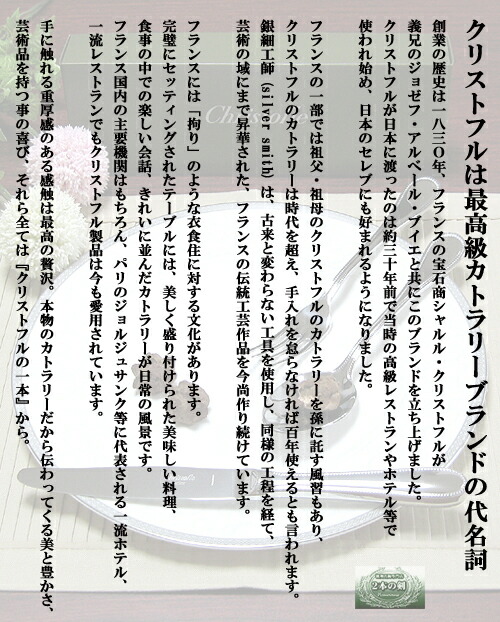 クリストフルは最高級カトラリーブランドの代名詞
創業の歴史は一八三〇年、フランスの宝石商シャルル・クリストフルが
義兄のジョゼフ・アルベール・ブイエと共にこのブランドを立ち上げました。
クリストフルが日本に渡ったのは約三十年前で当時の高級レストランやホテル等で
使われ始め、日本のセレブにも好まれるようになりました。
フランスの一部では祖父・祖母のクリストフルのカトラリーを孫に託す風習もあり、
クリストフルのカトラリーは時代を超え、手入れを怠らなければ百年使えるとも言われます。
銀細工師（silver smith）は、古来と変わらない工具を使用し、同様の工程を経て、
芸術の域にまで昇華された、フランスの伝統工芸作品を今尚作り続けています。
フランスには「拘り」のような衣食住に対する文化があります。
完璧にセッティングされたテーブルには、美しく盛り付けられた美味しい料理、
食事の中での楽しい会話、きれいに並んだカトラリーが日常の風景です。
フランス国内の主要機関はもちろん、パリのジョルジュサンク等に代表される一流ホテル、
一流レストランでもクリストフル製品は今も愛用されています。
手に触れる重厚感のある感触は最高の贅沢。本物のカトラリーだから伝わってくる美と豊かさ、
芸術品を持つ事の喜び、それら全ては『クリストフルの一本』から。
2本の剣